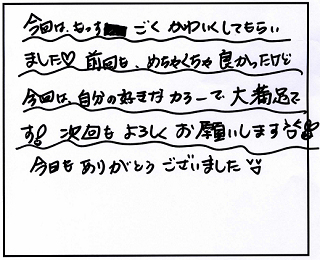 今回は、ものす ごく かわいくしてもらい
ました♡ 前回も、めちゃくちゃ 良かったけど
今回は、自分の好きな カラーで 大満足で
す! 次回も よろしく お願いします
今日も ありがとう ございました